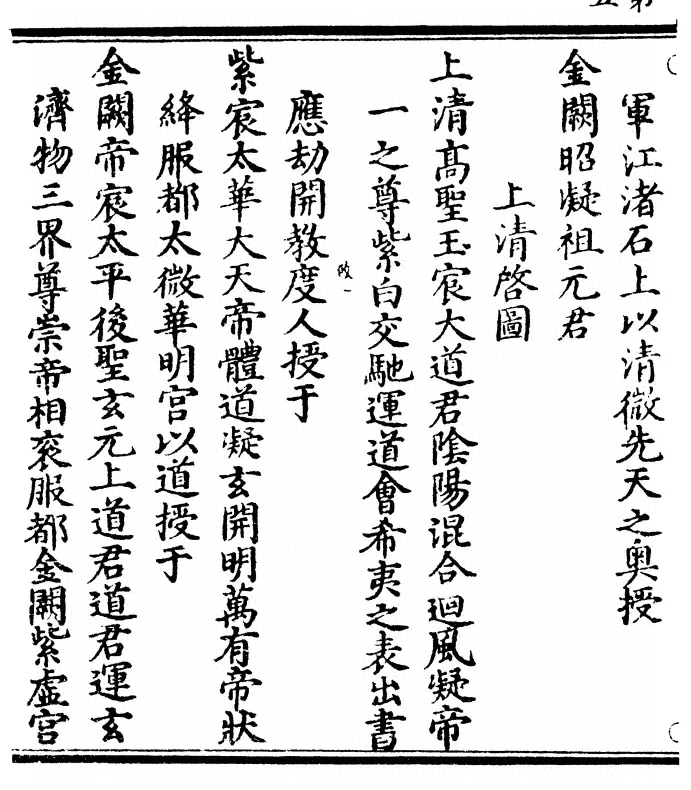 軍江渚石上以清微先天之奥授
金闕昭凝祖元君
上清啓圖
上清髙聖玉宸大道君陰陽混合迴風凝帝
一之尊紫白交馳運道會希夷之表出書
應劫開教度人授于
紫宸太華大天帝體道凝玄開明萬有帝狀
絳服都太微華明宫以道授于
金闕帝宸太平後聖玄元上道君道君運玄
濟物三界尊崇帝相衮服都金闕紫虚宫